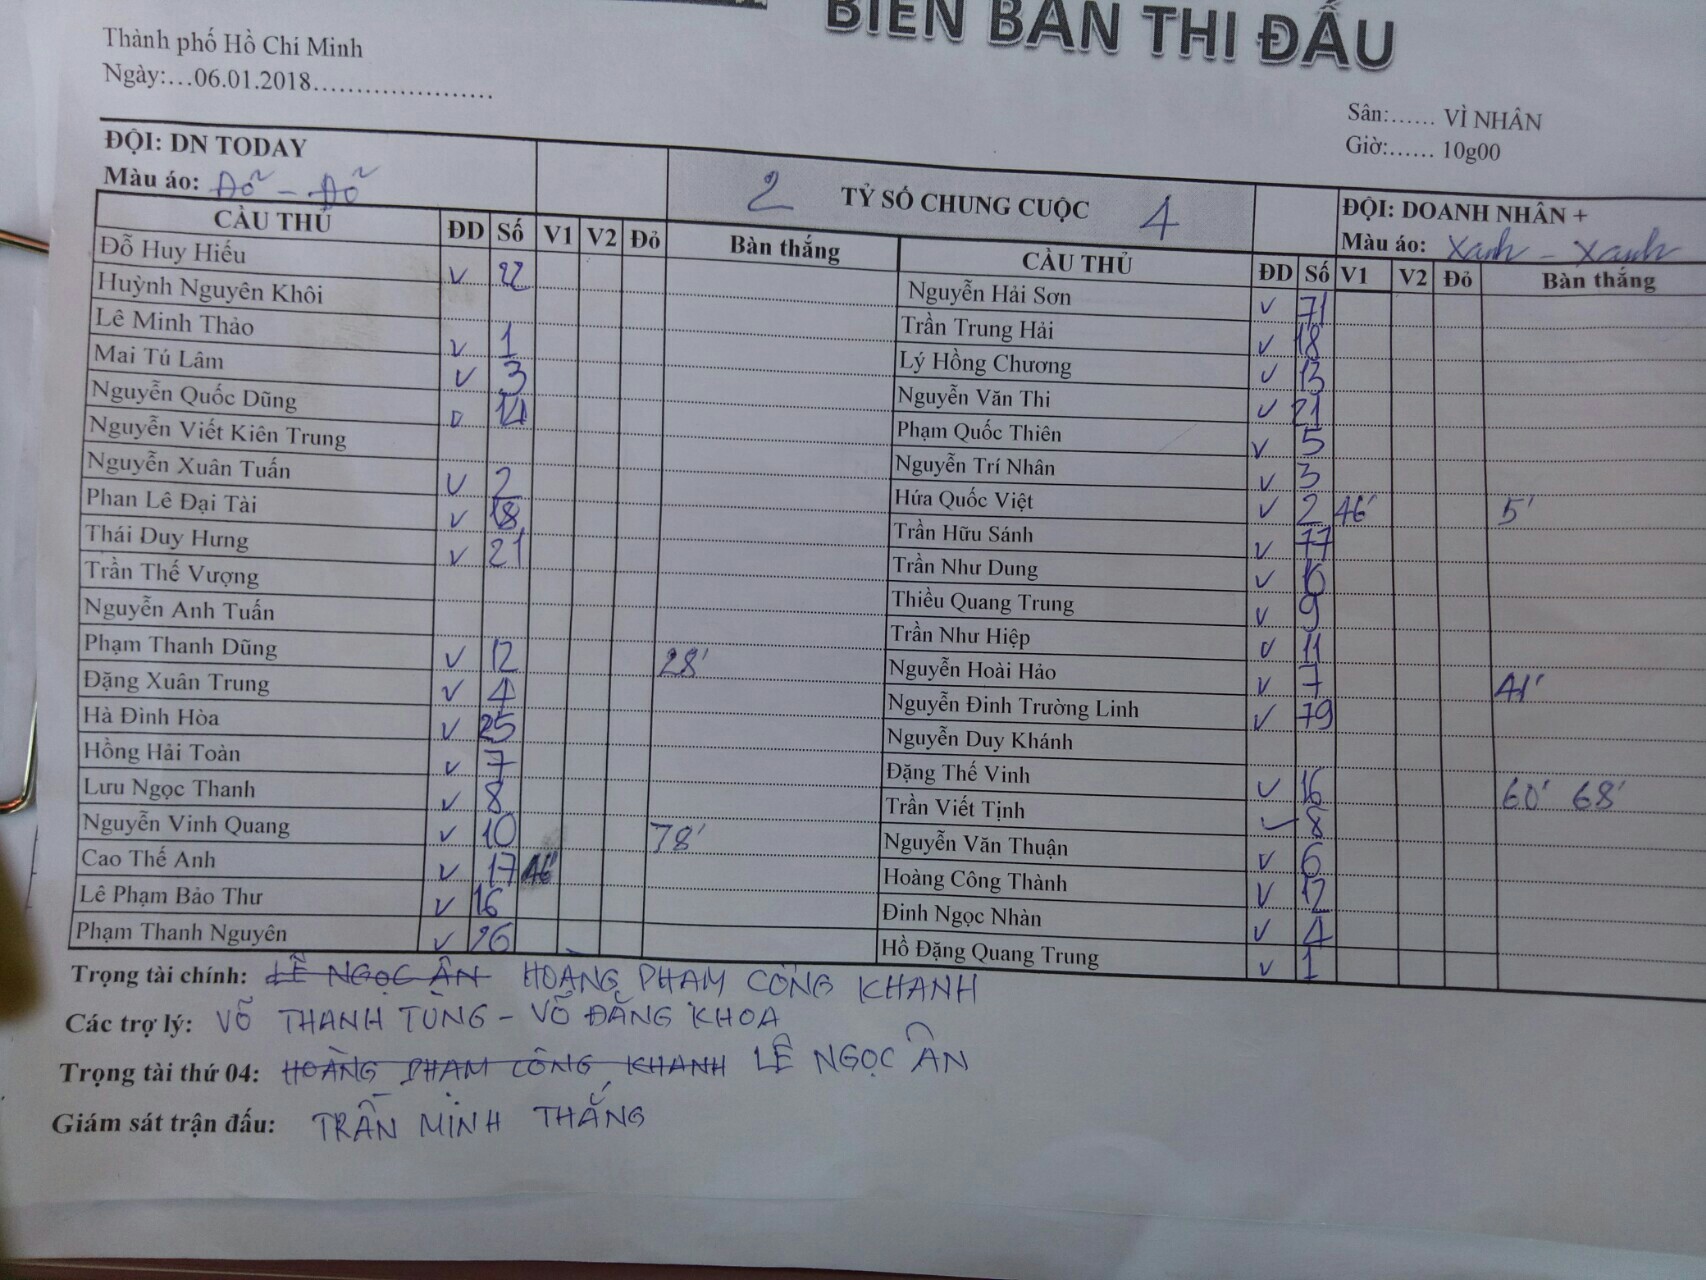 BIÊN BẢN THI ĐẤU
Thành phố Hồ Chí Minh
Ngày:...06.01.2018.....................
Sân:...... VÌ NHÂN
Giờ:...... 10g00
ĐỘI: DN TODAY
Màu áo: Đỏ - Đỏ
2 TỶ SỐ CHUNG CUỘC 4
ĐỘI: DOANH NHÂN +
Màu áo: Xanh - Xanh
CẦU THỦ ĐD Số V1 V2 Đỏ Bàn thắng CẦU THỦ ĐD Số V1 V2 Đỏ Bàn thắng
Đỗ Huy Hiếu v 22 Nguyễn Hải Sơn v 71
Huỳnh Nguyên Khôi Trần Trung Hải v 18
Lê Minh Thảo v 1 Lý Hồng Chương v 13
Mai Tú Lâm v 3 Nguyễn Văn Thi v 21
Nguyễn Quốc Dũng v 14 Phạm Quốc Thiên v 5
Nguyễn Viết Kiên Trung Nguyễn Trí Nhân v 3
Nguyễn Xuân Tuấn v 2 Hứa Quốc Việt v 2 46' 5'
Phan Lê Đại Tài v 18 Trần Hữu Sánh v 77
Thái Duy Hưng v 21 Trần Như Dung v
Trần Thế Vượng Thiều Quang Trung v 9
Nguyễn Anh Tuấn Trần Như Hiệp v 11
Phạm Thanh Dũng v 12 28' Nguyễn Hoài Hảo v 7 41'
Đặng Xuân Trung v 4 Nguyễn Đinh Trường Linh v 79
Hà Đình Hòa v 25 Nguyễn Duy Khánh
Hồng Hải Toàn v 7 Đặng Thế Vinh v 16 60' 68'
Lưu Ngọc Thanh v 8 Trần Viết Tịnh v 8
Nguyễn Vinh Quang v 10 78' Nguyễn Văn Thuận v 6
Cao Thế Anh v 17 46' Hoàng Công Thành v 12
Lê Phạm Bảo Thư v 16 Đinh Ngọc Nhàn v 4
Phạm Thanh Nguyên v 26 Hồ Đặng Quang Trung v 1
Trọng tài chính: LÊ NGỌC ÂN HOÀNG PHẠM CÔNG KHANH
Các trợ lý: VÕ THANH TÙNG - VÕ ĐĂNG KHOA
Trọng tài thứ 04: HOÀNG PHẠM CÔNG KHANH LÊ NGỌC ÂN
Giám sát trận đấu: TRẦN MINH THẮNG